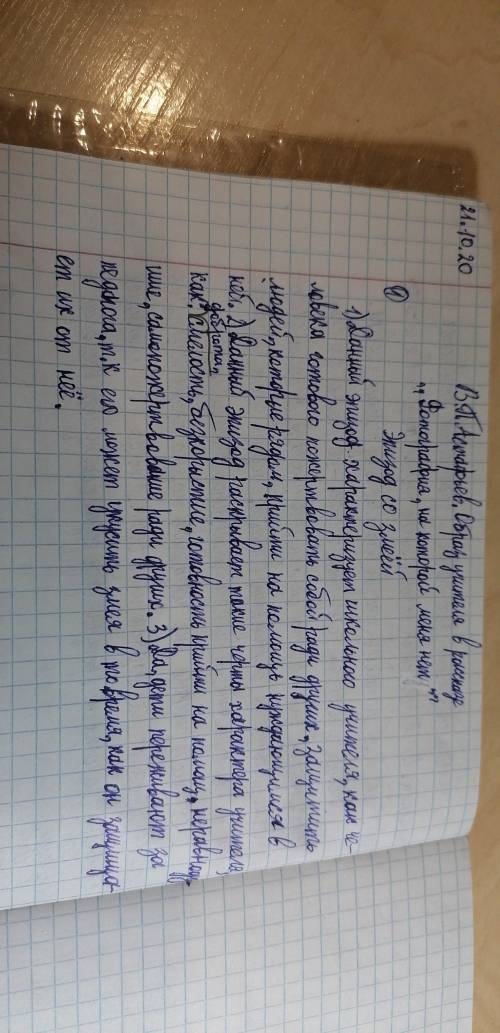 21.10.20
В.П. Астафьев. Образ учителя в рассказе
„Фотография, на которой меня нет"
① Эпизод со змеёй
1) Данный эпизод характеризует школьного учителя, как че-
ловека готового пожертвовать собой ради других, защитить
людей, которые рядом, прийти на помощь нуждающимся в
ней. 2) Данный эпизод раскрывает такие черты характера учителя,
как: доброта, смелость, безкорыстие, готовность прийти на помощ, неравноду-
шие, самопожертвование ради других. 3) Да, дети переживают за
педагога, т.к его может укусить змея в то время, как он защища-
ет их от неё.